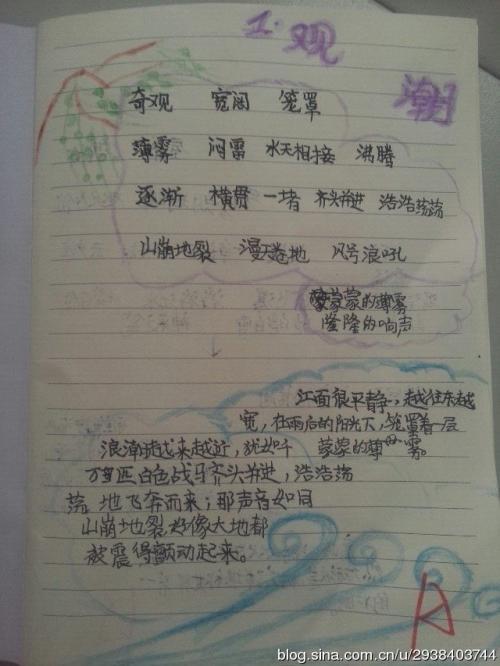 1. 观
潮
奇观 宽阔 笼罩
薄雾 闷雷 水天相接 沸腾
逐渐 横贯 一堵 齐头并进 浩浩荡荡
山崩地裂 漫天卷地 风号浪吼
蒙蒙的薄雾
隆隆的响声
江面很平静，越往东越
宽，在雨后的阳光下，笼罩着一层
蒙蒙的薄雾。
浪潮越来越近，犹如千
万匹白色战马齐头并进，浩浩荡
荡地飞奔而来；那声音如同
山崩地裂，好像大地都
被震得颤动起来。
A
blog.sina.com.cn/u/2938403744